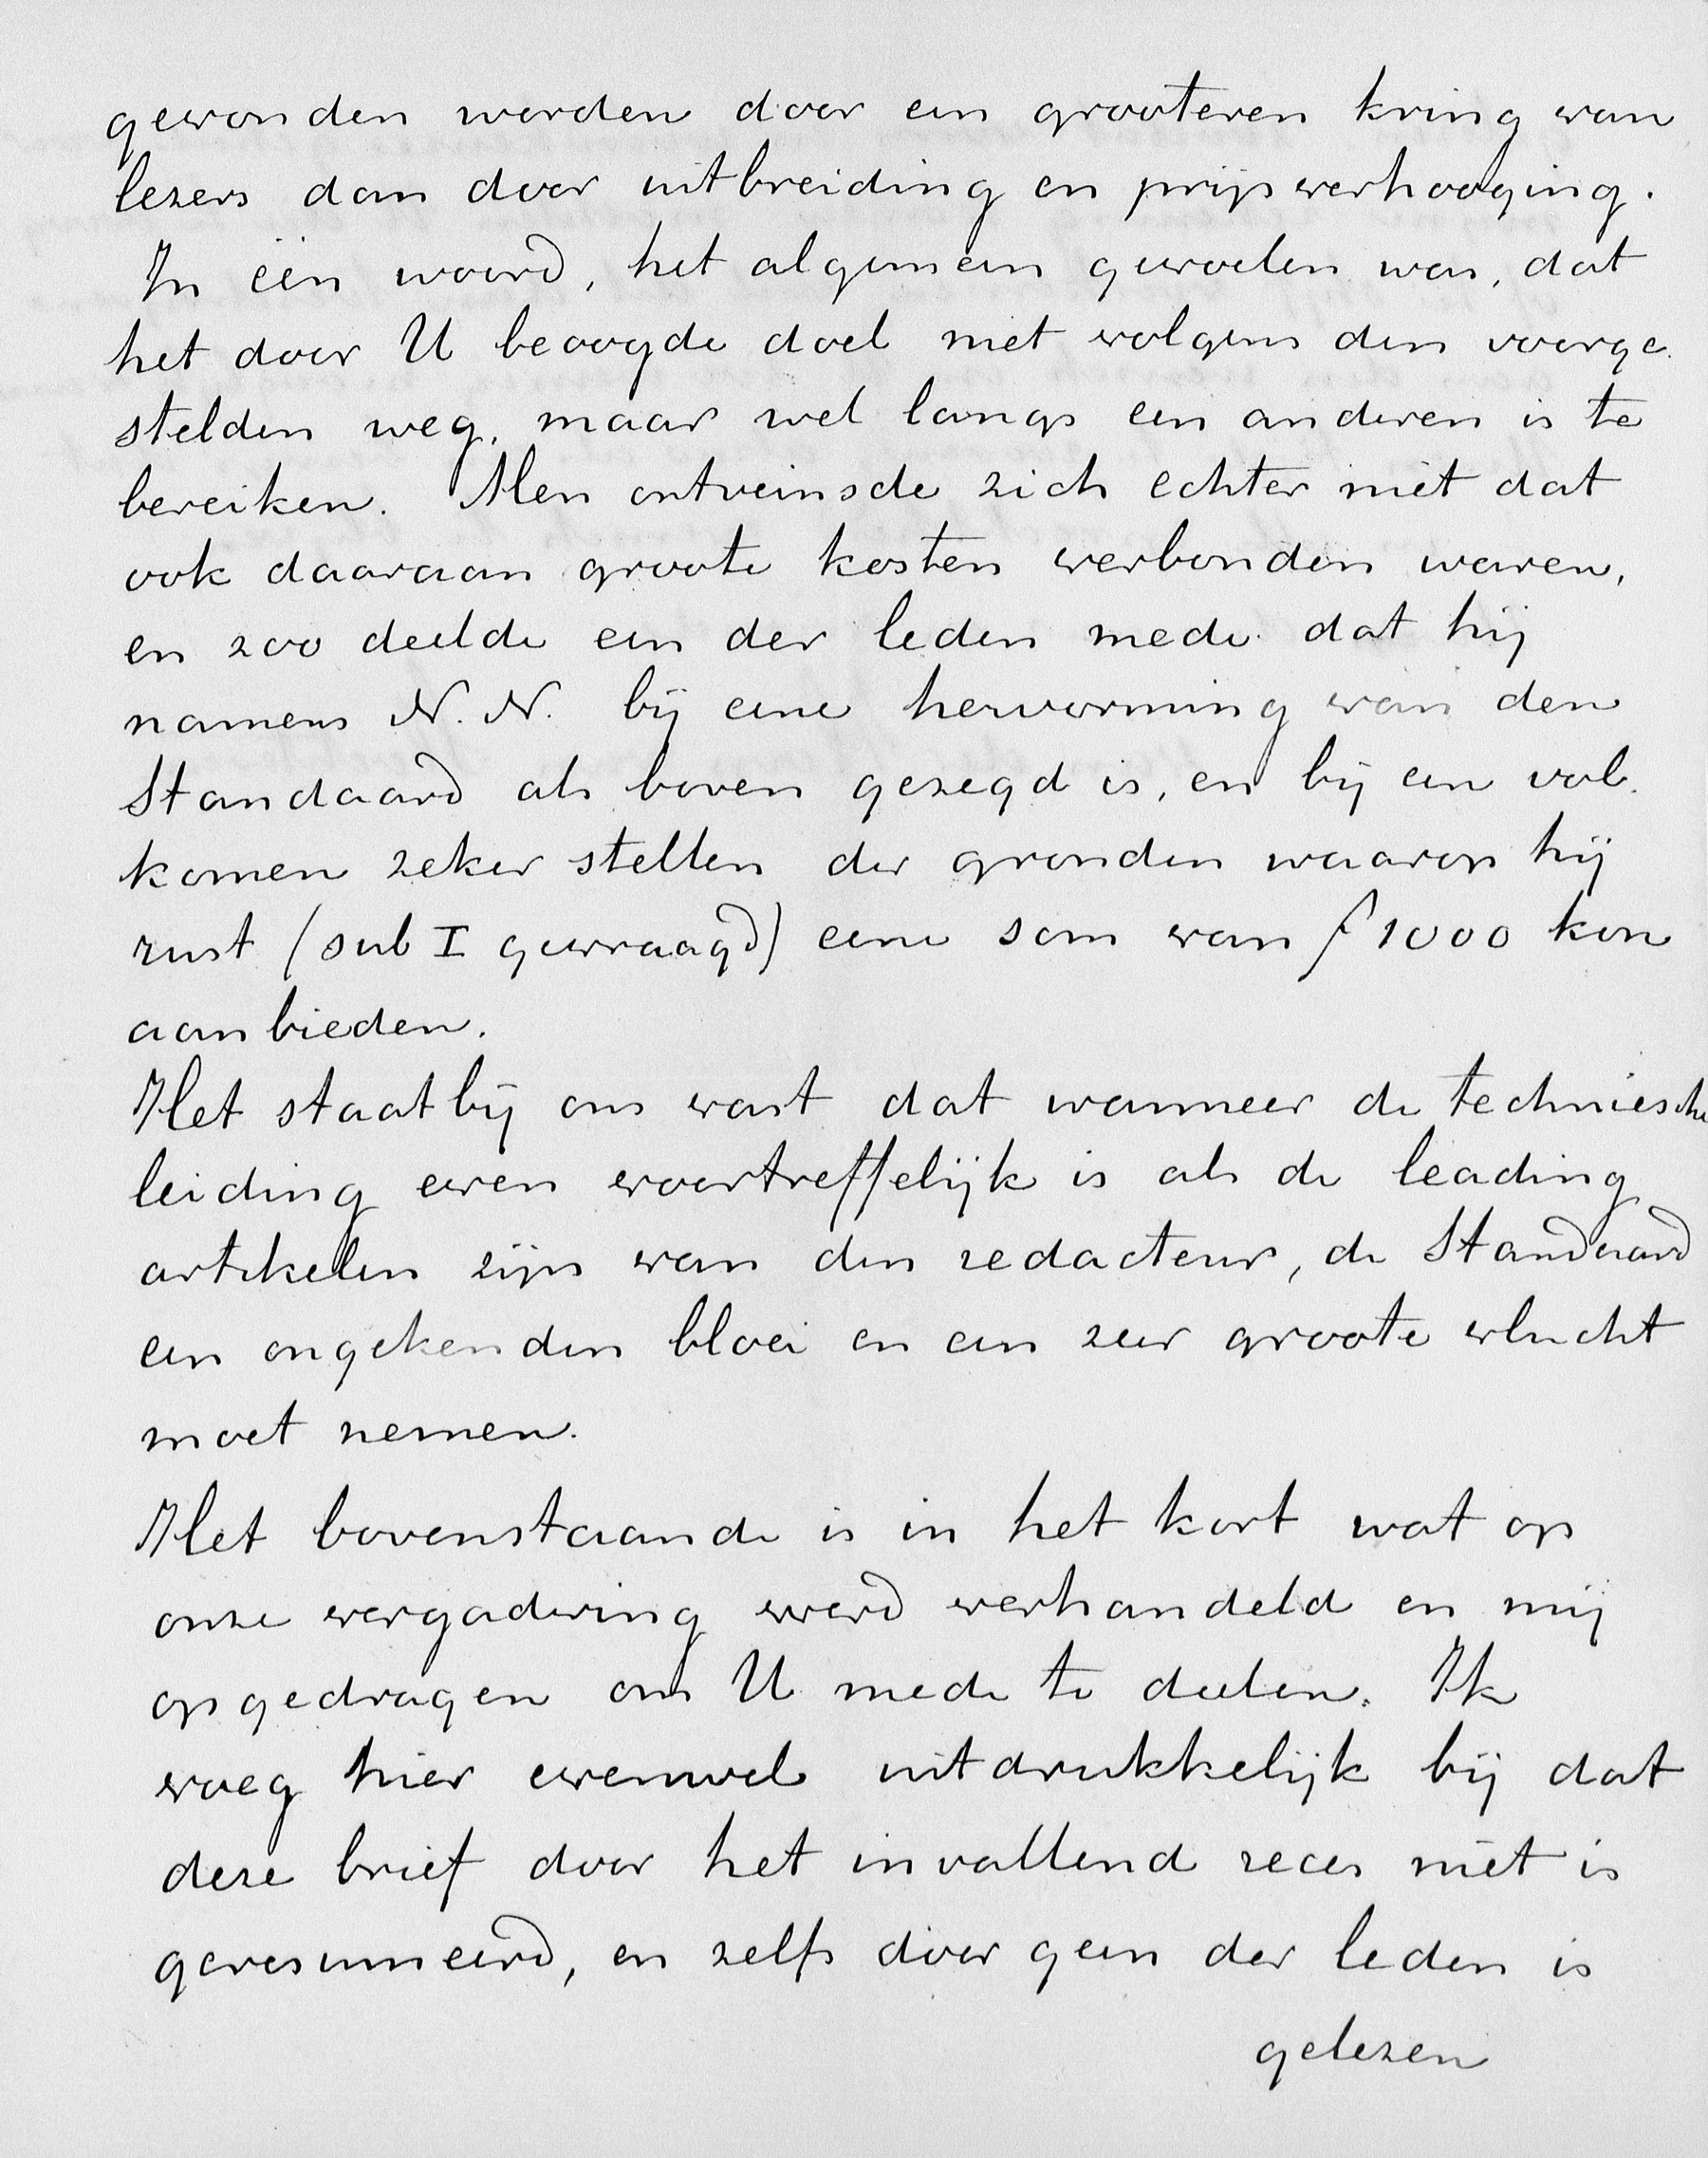 gevonden worden door een grooteren kring van
lezers dan door uitbreiding en prijsverhooging.
In één woord, het algemeen gevoelen was, dat
het door U beoogde doel niet volgens den voorge-
stelden weg, maar wel langs een anderen is te
bereiken. Men ontveinsde zich echter niet dat
ook daaraan groote kosten verbonden waren,
en zoo deelde een der leden mede dat hij
namens N. N. bij eene hervorming van den
Standaard als boven gezegd is, en bij een vol-
komen zeker stellen der gronden waarop hij
rust (sub I gevraagd) eene som van ƒ 1000 kon
aanbieden.
Het staat bij ons vast dat wanneer de techniesche
leiding even voortreffelijk is als de leading
artikelen zijn van den redacteur, de Standaard
een ongekenden bloei en een zeer groote vlucht
moet nemen.
Het bovenstaande is in het kort wat op
onze vergadering werd verhandeld en mij
opgedragen om U mede te deelen. Ik
voeg hier evenwel uitdrukkelijk bij dat
deze brief door het invallend reces niet is
geresumeerd, en zelfs door geen der leden is
gelezen